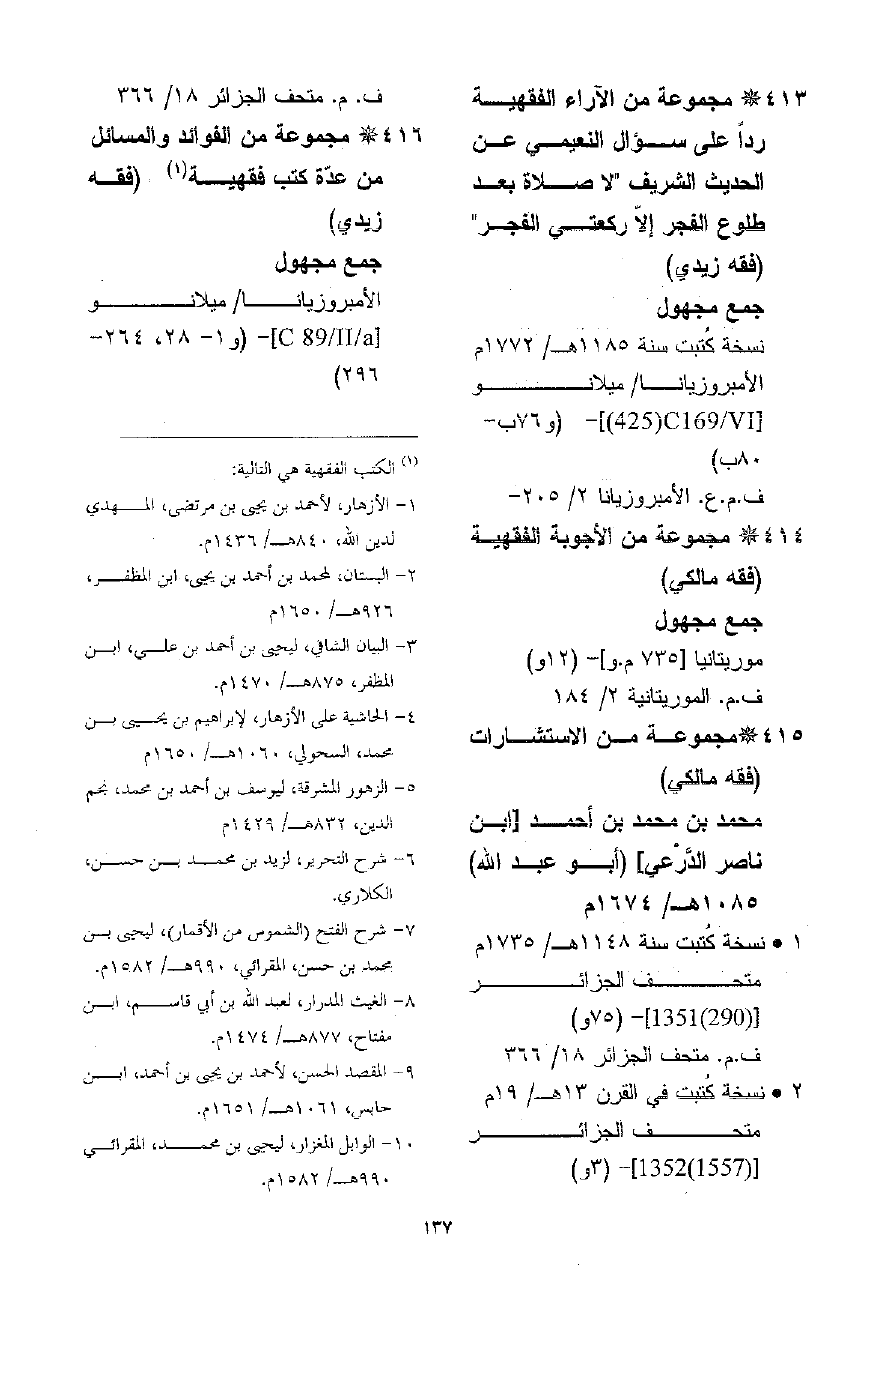 ٤١٣ ❊ مجموعة من الآراء الفقهية
رداً على سؤال النعيمي عن
الحديث الشريف "لا صلاة بعد
طلوع الفجر إلاّ ركعتي الفجر"
(فقه زيدي)
جمع مجهول
نسخة كُتبت سنة ١١٨٥هـ/ ١٧٧٢م
الأمبروزيانا/ ميلانو
[C169/VI(425)]- (و٧٦ب-
٨٠ب)
ف.م.ع. الأمبروزيانا ٢/ ٢٠٥-
٤١٤ ❊ مجموعة من الأجوبة الفقهية
(فقه مالكي)
جمع مجهول
موريتانيا [٧٣٥ م.و]- (١٢و)
ف.م. الموريتانية ٢/ ١٨٤
٤١٥ ❊مجموعة من الاستشارات
(فقه مالكي)
محمد بن محمد بن أحمد [ابن
ناصر الدَّرْعي] (أبو عبد الله)
١٠٨٥هـ/ ١٦٧٤م
١ • نسخة كُتبت سنة ١١٤٨هـ/ ١٧٣٥م
متحف الجزائر
[1351(290)]- (٧٥و)
ف.م. متحف الجزائر ١٨/ ٣٦٦
٢ • نسخة كُتبت في القرن ١٣هـ/ ١٩م
متحف الجزائر
[1352(1557)]- (٣و)
ف. م. متحف الجزائر ١٨/ ٣٦٦
٤١٦ ❊ مجموعة من الفوائد والمسائل
من عدّة كتب فقهية(١) (فقه
زيدي)
جمع مجهول
الأمبروزيانا/ ميلانو
[C 89/II/a]- (و ١- ٢٨، ٢٦٤-
٢٩٦)
(١) الكتب الفقهية هي التالية:
١- الأزهار، لأحمد بن يحيى بن مرتضى، المهدي
لدين الله، ٨٤٠هـ/ ١٤٣٦م.
٢- البستان، لمحمد بن أحمد بن يحيى، ابن المظفر،
٩٢٦هـ/ ١٦٥٠م
٣- البيان الشافي، ليحيى بن أحمد بن علي، ابن
المظفر، ٨٧٥هـ/ ١٤٧٠م.
٤- الحاشية على الأزهار، لإبراهيم بن يحيى بن
محمد، السحولي، ١٠٦٠هـ/ ١٦٥٠م
٥- الزهور المشرقة، ليوسف بن أحمد بن محمد، نجم
الدين، ٨٣٢هـ/ ١٤٢٩م
٦- شرح التحرير، لزيد بن محمد بن حسن،
الكلاري.
٧- شرح الفتح (الشموس من الأقمار)، ليحيى بن
محمد بن حسن، المقرائي، ٩٩٠هـ/ ١٥٨٢م.
٨- الغيث المدرار، لعبد الله بن أبي قاسم، ابن
مفتاح، ٨٧٧هـ/ ١٤٧٤م.
٩- المقصد الحسن، لأحمد بن يحيى بن أحمد، ابن
حابس، ١٠٦١هـ/ ١٦٥١م.
١٠- الوابل المغزار، ليحيى بن محمد، المقرائي
٩٩٠هـ/ ١٥٨٢م.
١٣٧